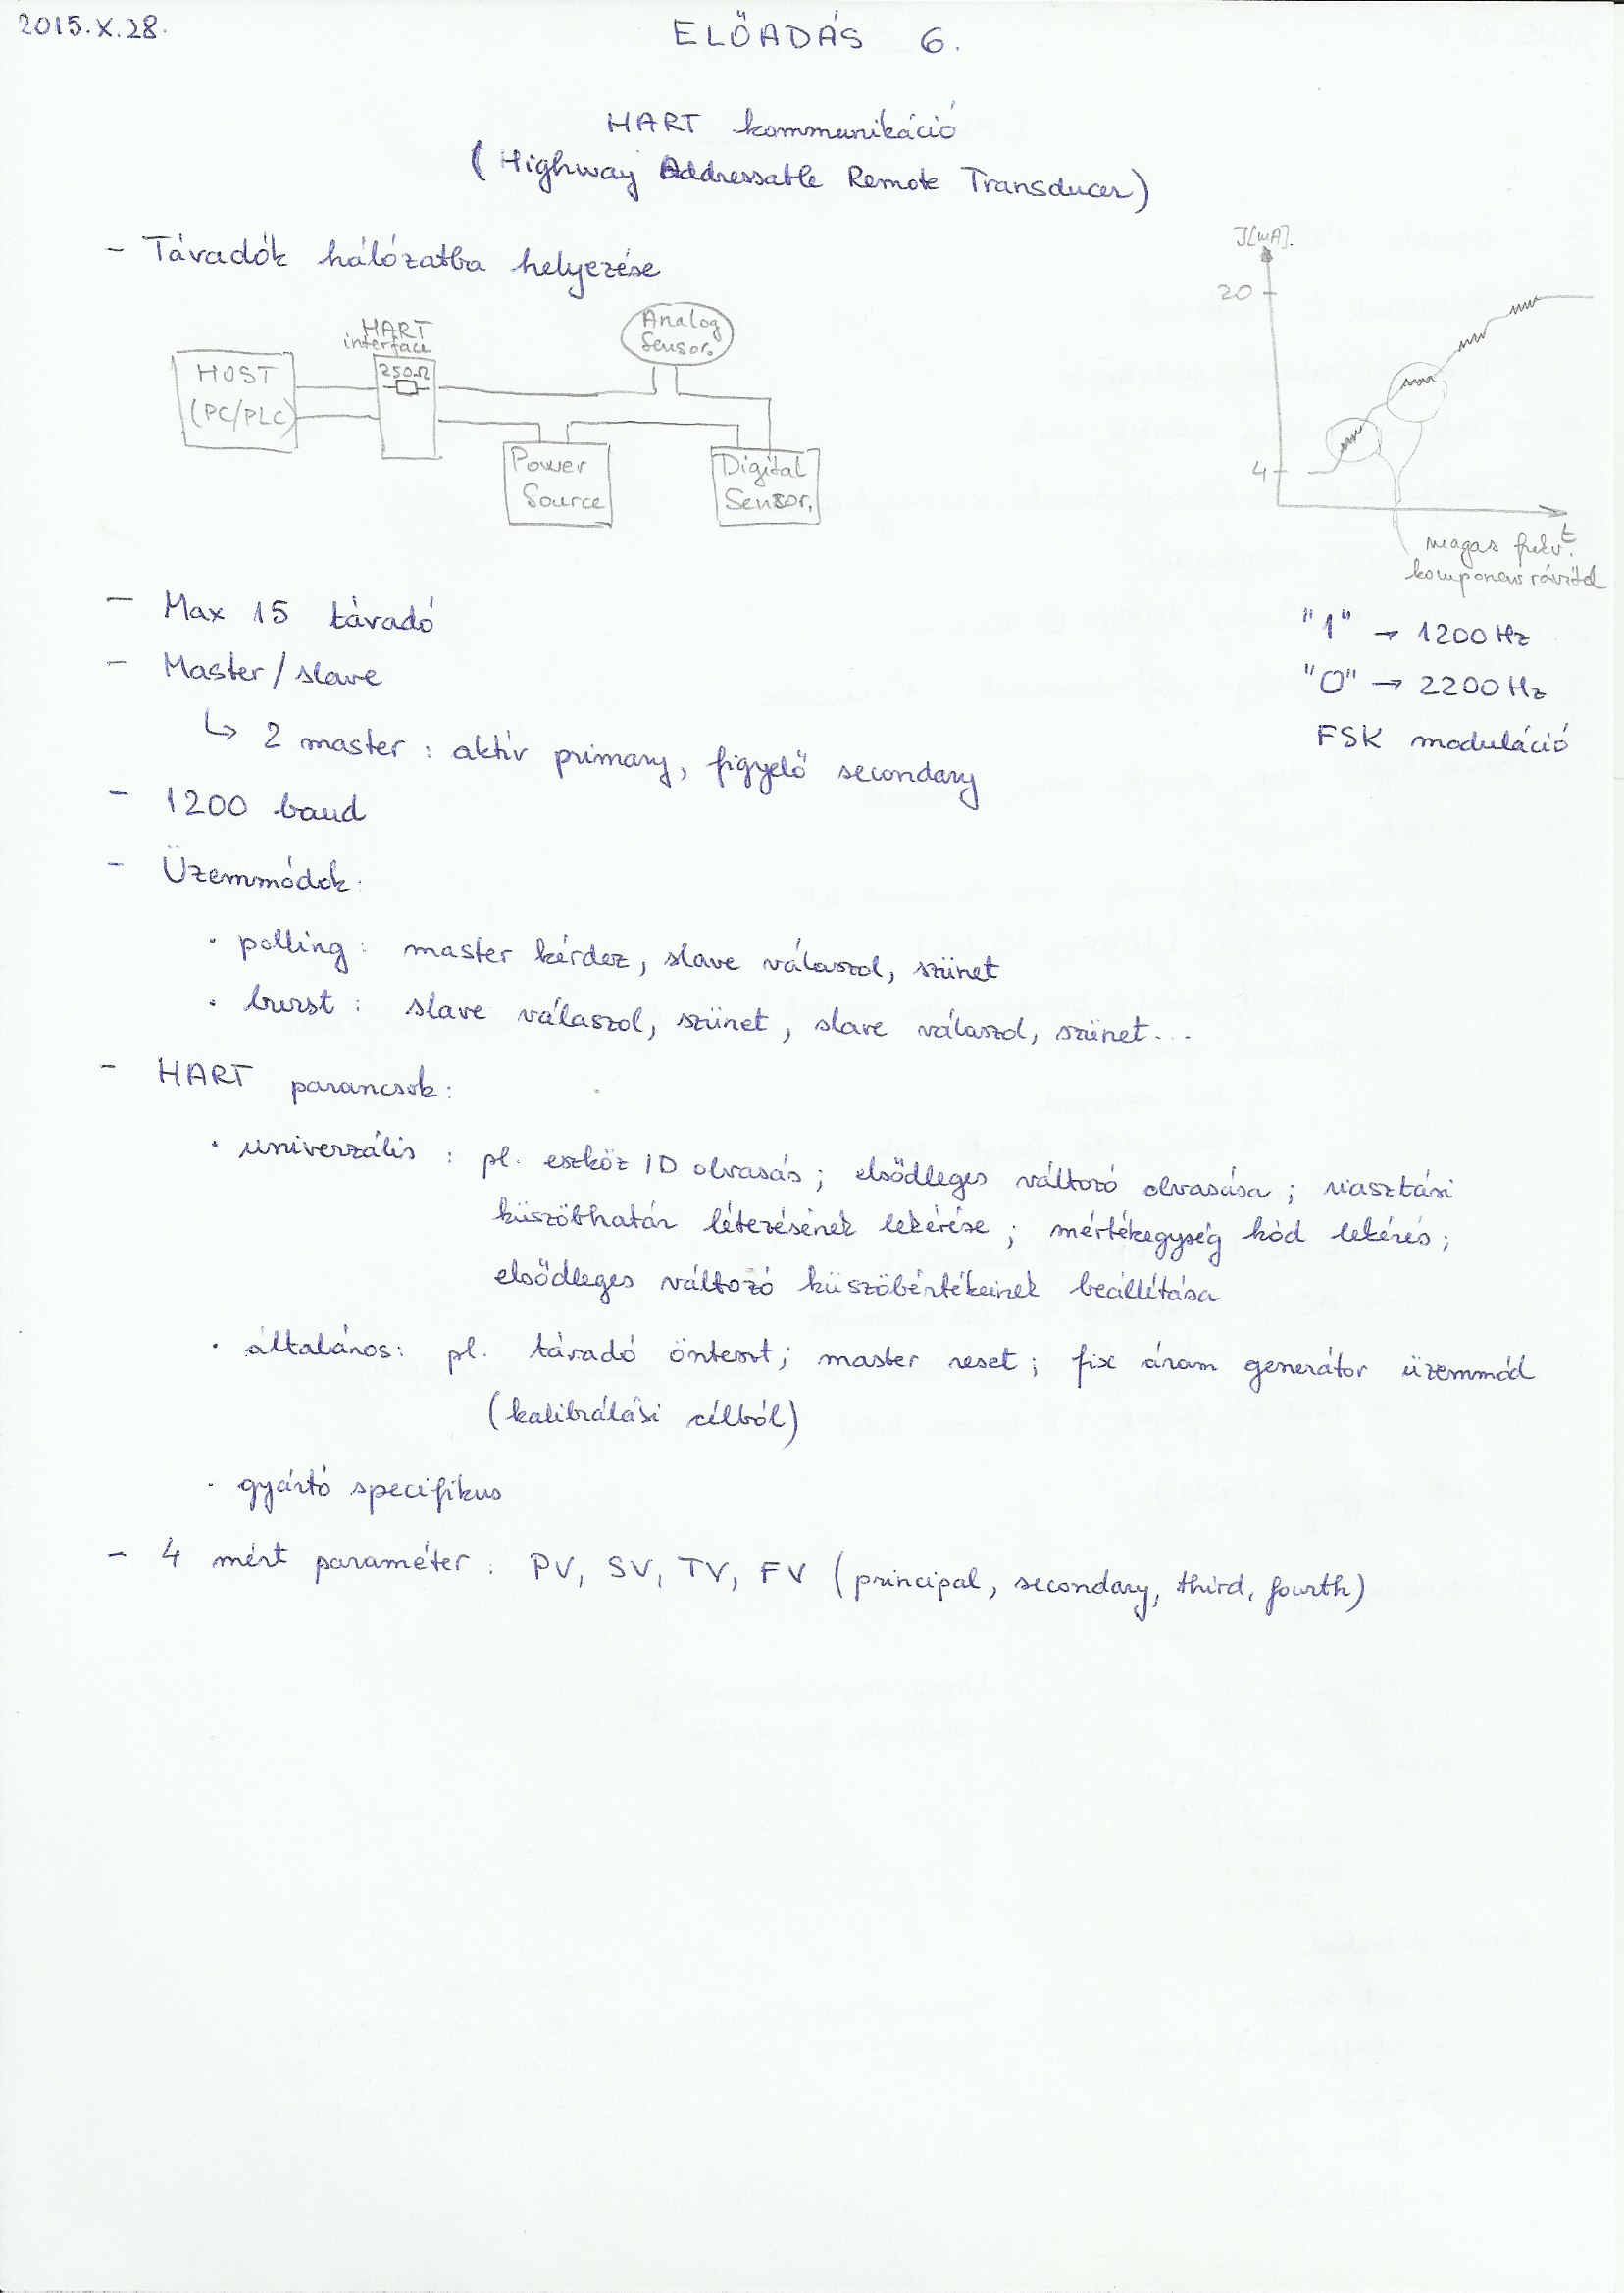 2015.X.28.
ELŐADÁS 6.
HART kommunikáció
(Highway Addressable Remote Transducer)
- Távadók hálózatba helyezése
HART
interface
250Ω
HOST
(PC/PLC)
Analog
Sensor.
Power
Source
Digital
Sensor.
I[mA].
20
4
t
magas frekv.
komponens ráültel
"1" → 1200 Hz
"0" → 2200 Hz
FSK moduláció
- Max 15 távadó
- Master/slave
↳ 2 master : aktív primary, figyelő secondary
- 1200 baud
- Üzemmódok:
· polling : master kérdez, slave válaszol, szünet
· burst : slave válaszol, szünet, slave válaszol, szünet...
- HART parancsok:
· univerzális : pl. eszköz ID olvasás ; elsődleges változó olvasása ; riasztási
küszöbhatár létezésének lekérése ; mértékegység kód lekérés ;
elsődleges változó küszöbértékeinek beállítása
· általános: pl. távadó önteszt; master reset ; fix áram generátor üzemmód
(kalibrálási célból)
· gyártó specifikus
- 4 mért paraméter : PV, SV, TV, FV (principal, secondary, third, fourth)